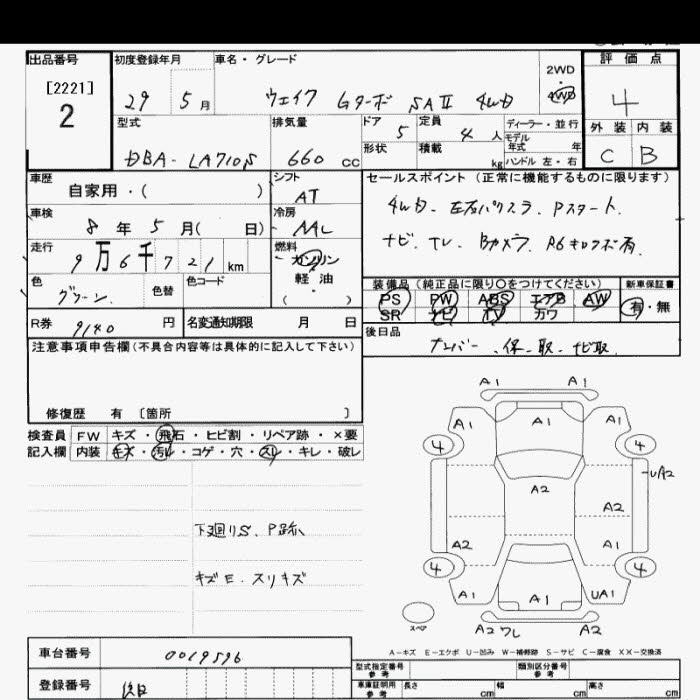 出品番号 初度登録年月 車名・グレード 評価点
[2221]
2
29 5月 ウェイク Gターボ SAⅡ 4WD 2WD・4WD 4
型式 排気量 ドア 定員 ディーラー・並行 外装 内装
DBA-LA710S 660cc 5 4人 モデル年式 年 C B
形状 積載 kg ハンドル 左・右
車歴 シフト セールスポイント (正常に機能するものに限ります)
自家用・( ) AT
4WD. 左右パワスラ. Pスタート.
車検 冷房
8年5月( 日) AAC
ナビ. TV. Bカメラ.
走行 燃料
9万6千721km ガソリン
軽・油
( )
色 色替 色コード
グリーン.
装備品 (純正品に限り○をつけてください) 新車保証書
PS PW ABS エアB AW 有・無
SR ナビ TV カワ
R券 9140円 名変通知期限 月 日
後日品
ナンバー.保.取.ナビ取
注意事項申告欄(不具合内容等は具体的に記入して下さい)
修復歴 有 〔箇所 〕
検査員 FW キズ・飛石・ヒビ割・リペア跡・×要
記入欄 内装 キズ・汚れ・コゲ・穴・スレ・キレ・破レ
下廻りS.
キズE.スリキズ
A1 A1
A1 A1 A1
4 4
A2 UA2
A2
A2 A1
4 4
A1 A1 UA1
スペア A2 ワレ A2
A-キズ E-エクボ U-凹み W-補修跡 S-サビ C-腐食 XX-交換済
車台番号 0019596
型式指定番号 参考 類別区分番号 参考
登録番号 後日
車庫証明用 参考 長さ cm 幅 cm 高さ cm